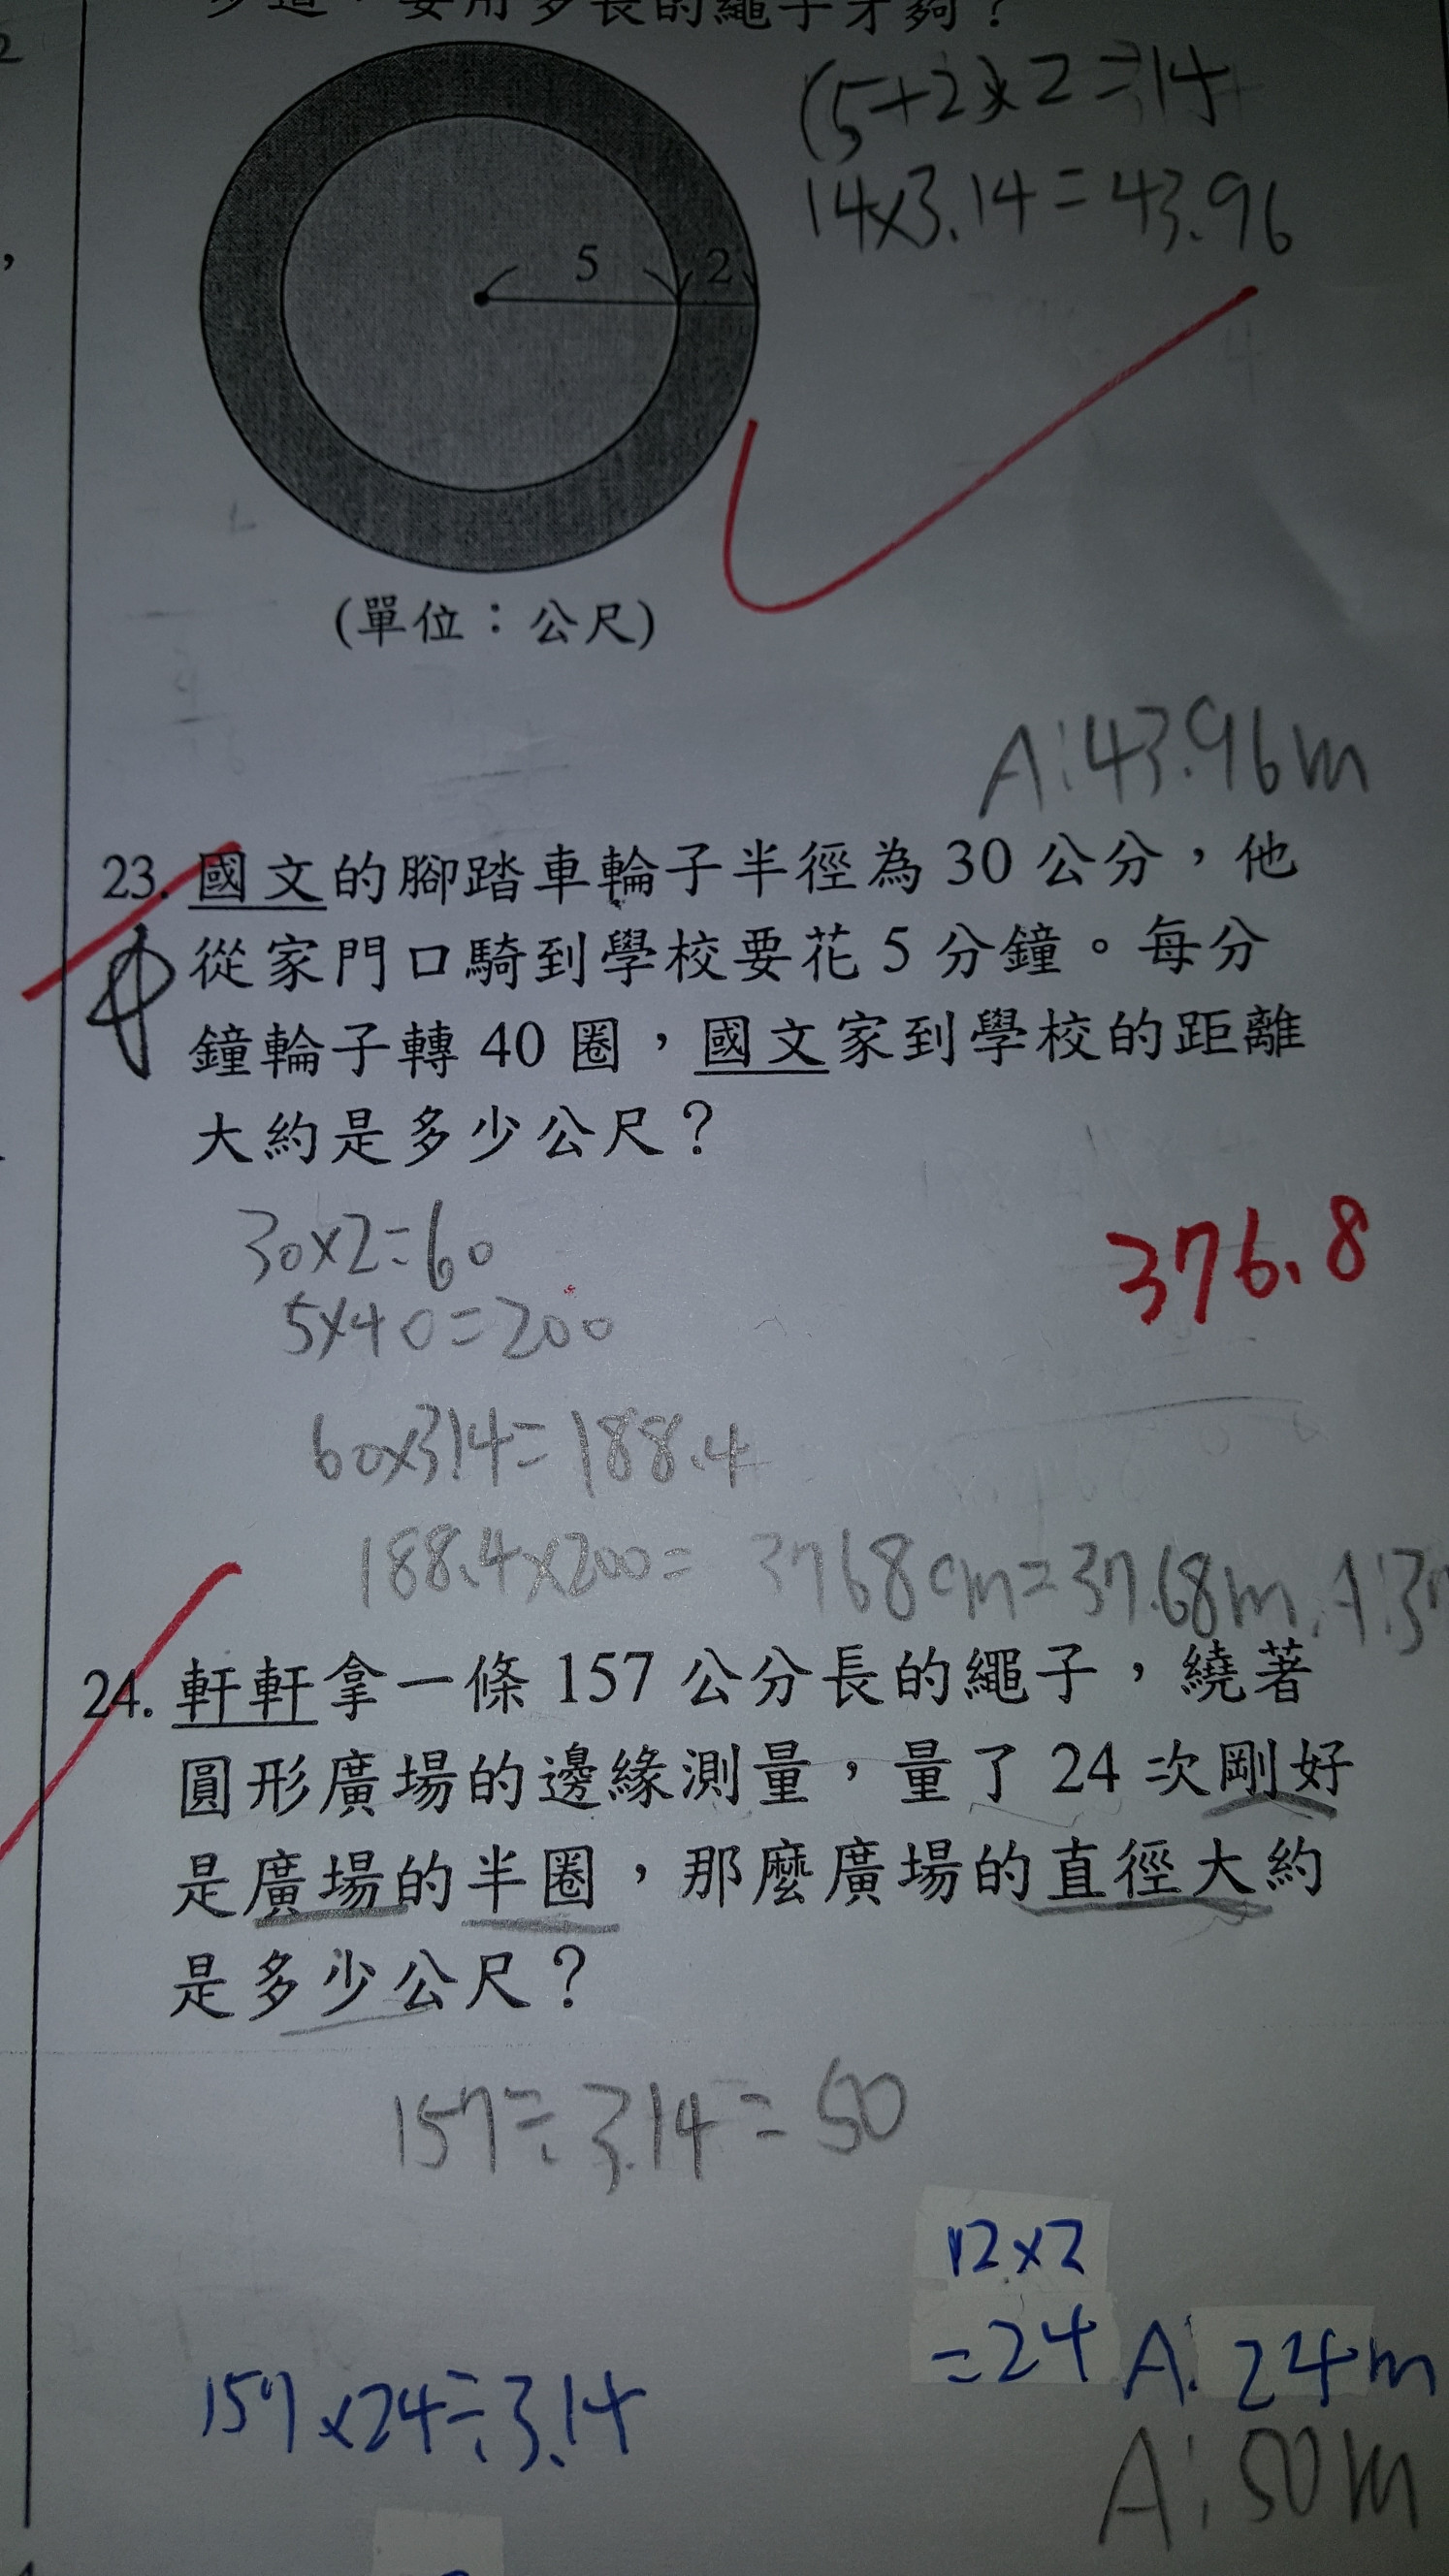 要用多長的繩子才夠？
(5+2)×2=14
14×3.14=43.96
5 2
(單位：公尺)
A:43.96m
23. 國文的腳踏車輪子半徑為 30 公分，他
從家門口騎到學校要花 5 分鐘。每分
鐘輪子轉 40 圈，國文家到學校的距離
大約是多少公尺？
30×2=60
376.8
5×40=200
60×3.14=188.4
188.4×200= 3768cm=37.68m A:3
24. 軒軒拿一條 157 公分長的繩子，繞著
圓形廣場的邊緣測量，量了 24 次剛好
是廣場的半圈，那麼廣場的直徑大約
是多少公尺？
157÷3.14=50
12×2
=24 A: 24m
157×24÷3.14
A:50m